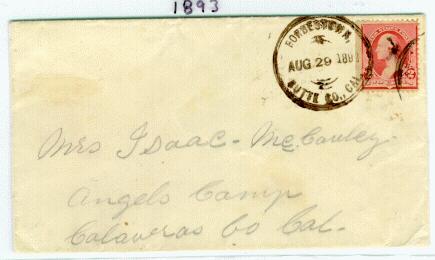 1893
FORBESTOWN,
AUG 29 189
BUTTE CO., CAL.
Mrs Isaac McCauley
Angels Camp
Calaveras Co Cal.